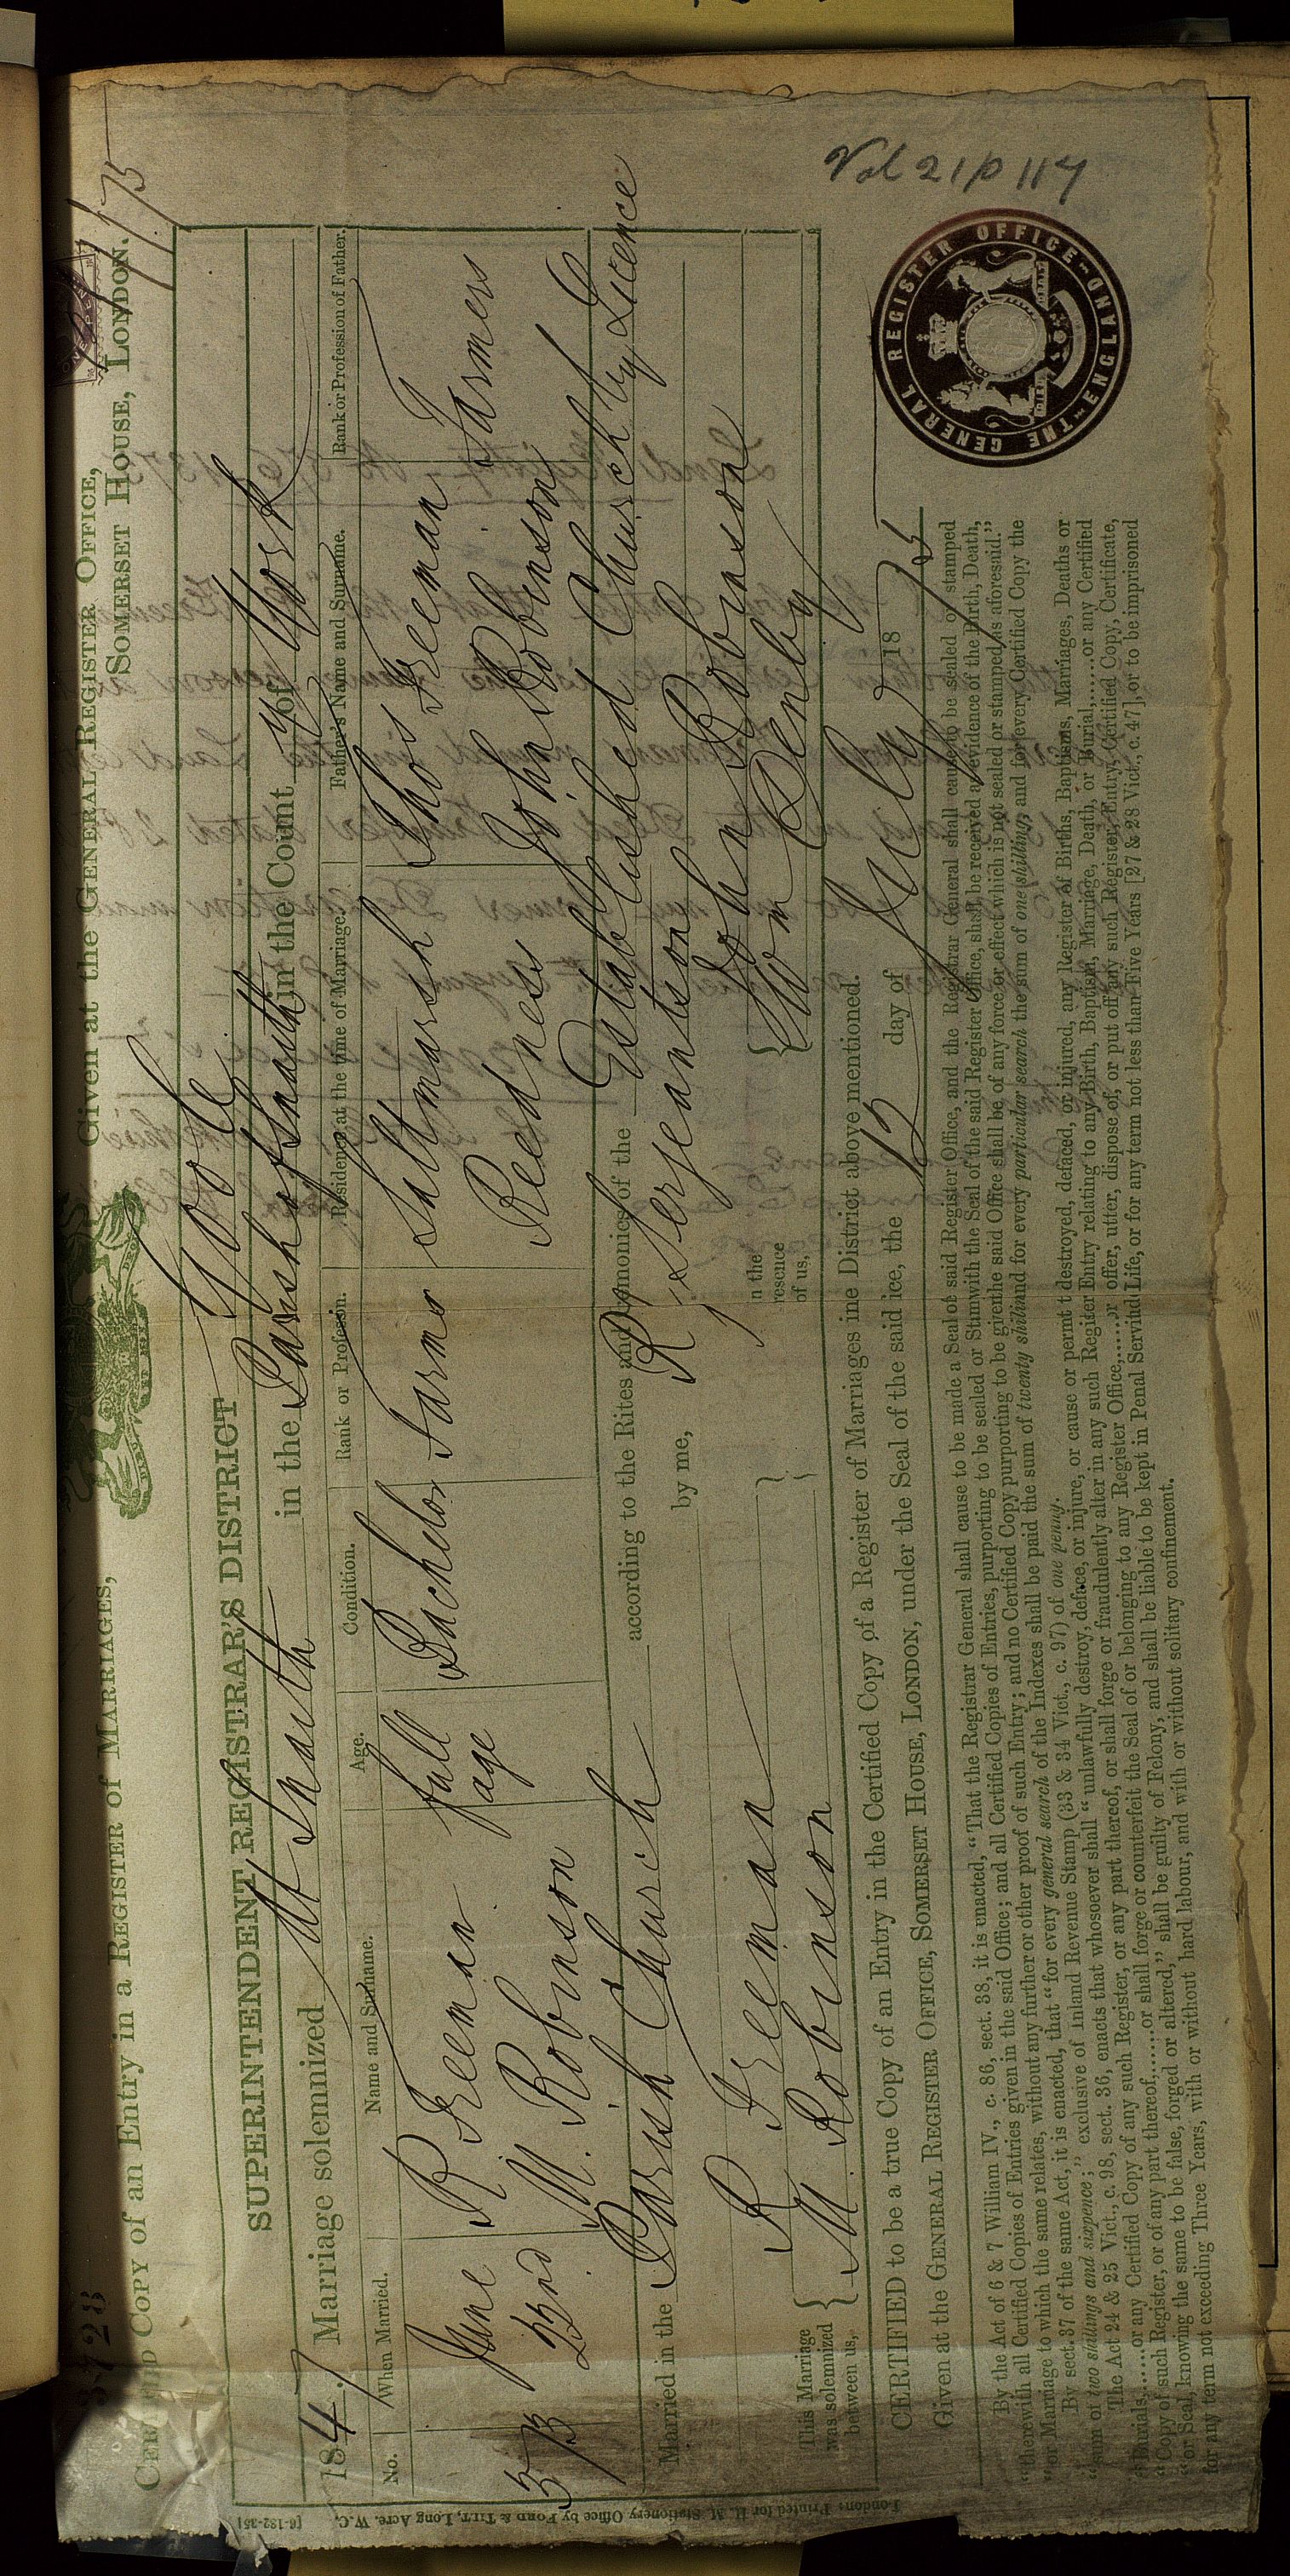 CERTIFIED COPY of an Entry in a REGISTER of MARRIAGES,
Given at the GENERAL REGISTER OFFICE,
SOMERSET HOUSE, LONDON.
SUPERINTENDENT REGISTRAR'S DISTRICT Goole
1847. Marriage solemnized At Snaith in the Parish of Snaith in the County of York
No. When Married. Name and Surname. Age. Condition. Rank or Profession. Residence at the time of Marriage. Father's Name and Surname. Rank or Profession of Father.
June R Freeman full Bachelor Farmer Saltmarsh Thos Freeman Farmers
22nd M. Robinson age Reedness John Robinson
Married in the Parish Church according to the Rites and Ceremonies of the Established Church by Licence
by me, R Serjeantson
This Marriage was solemnized between us, R Freeman
M Robinson
in the presence of us, John Robinson
Wm Denby
CERTIFIED to be a true Copy of an Entry in the Certified Copy of a Register of Marriages in the District above mentioned.
Given at the GENERAL REGISTER OFFICE, SOMERSET HOUSE, LONDON, under the Seal of the said Office, the 12 day of July 1875
By the Act of 6 & 7 William IV., c. 86, sect. 38, it is enacted, "That the Registrar General shall cause to be made a Seal of said Register Office, and the Registrar General shall cause to be sealed or stamped
"therewith all Certified Copies of Entries given in the said Office; and all Certified Copies of Entries, purporting to be sealed or Stamped with the Seal of the said Register Office, shall be received as evidence of the Birth, Death,
"or Marriage to which the same relates, without any further or other proof of such Entry; and no Certified Copy purporting to be given the said Office shall be of any force or effect which is not sealed or stamped as aforesaid."
By sect. 37 of the same Act, it is enacted, that "for every general search of the Indexes shall be paid the sum of twenty shillings and for every particular search the sum of one shilling; and for every Certified Copy the
"sum of two shillings and sixpence;" exclusive of Inland Revenue Stamp (33 & 34 Vict., c. 97) of one penny.
The Act 24 & 25 Vict., c. 98, sect. 36, enacts that whosoever shall "unlawfully destroy, deface, or injure, or cause or permit t destroyed, defaced, or injured, any Register of Births, Baptisms, Marriages, Deaths or
"Burials,......or any Certified Copy of any such Register, or any part thereof, or shall forge or fraudulently alter in any such Register Entry relating to any Birth, Baptism, Marriage, Death, or Burial,......or any Certified
"Copy of such Register, or of any part thereof,......or shall forge or counterfeit the Seal of or belonging to any Register Office,......or offer, utter, dispose of, or put off any such Register, Entry, Certified Copy, Certificate,
"or Seal, knowing the same to be false, forged or altered," shall be guilty of Felony, and shall be liable to be kept in Penal Servitude Life, or for any term not less than Five Years [27 & 28 Vict., c. 47], or to be imprisoned
for any term not exceeding Three Years, with or without hard labour, and with or without solitary confinement.
THE GENERAL REGISTER OFFICE ENGLAND
Vol 21 p 117
London: Printed for H. M. Stationery Office by FORD & TILT, Long Acre, W.C.